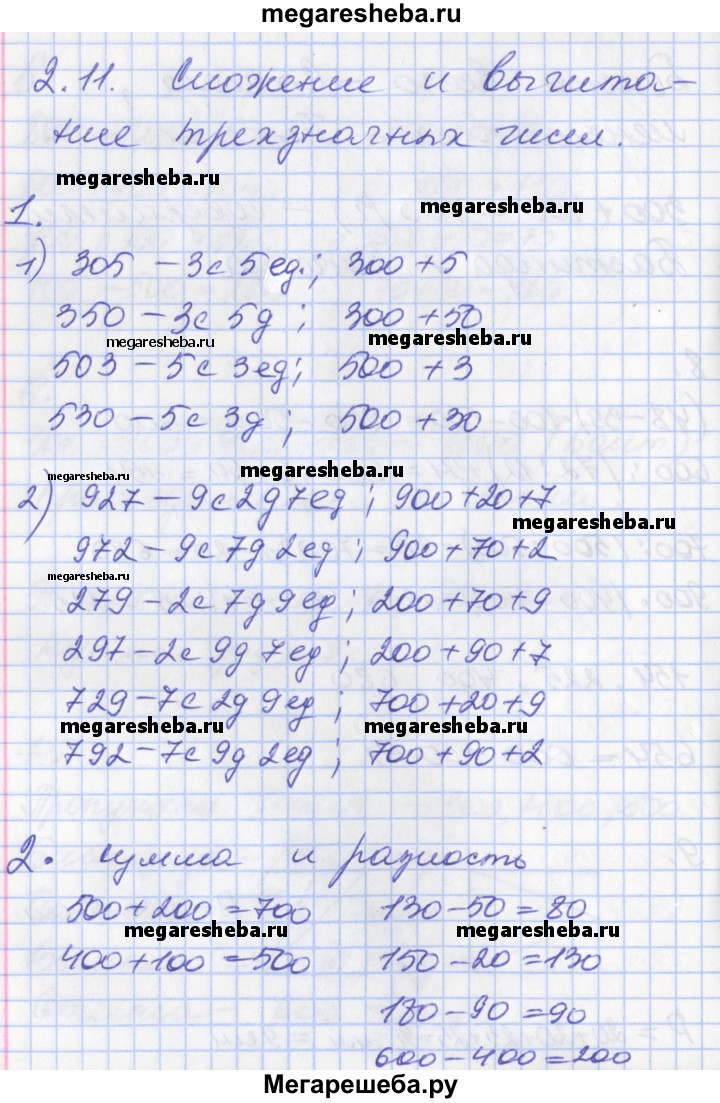 megaresheba.ru
2.11. Сложение и вычита-
ние трехзначных чисел.
megaresheba.ru
megaresheba.ru
1.
1) 305 – 3с 5ед.; 300 + 5
350 – 3с 5д ; 300 + 50
megaresheba.ru megaresheba.ru
503 – 5с 3ед; 500 + 3
530 – 5с 3д ; 500 + 30
megaresheba.ru megaresheba.ru
2) 927 – 9с 2д 7ед ; 900 + 20 + 7
megaresheba.ru
972 – 9с 7д 2ед ; 900 + 70 + 2
megaresheba.ru
279 – 2с 7д 9ед ; 200 + 70 + 9
297 – 2с 9д 7ед ; 200 + 90 + 7
729 – 7с 2д 9ед ; 700 + 20 + 9
megaresheba.ru megaresheba.ru
792 – 7с 9д 2ед ; 700 + 90 + 2
2. сумма и разность
500 + 200 = 700 130 – 50 = 80
megaresheba.ru megaresheba.ru
400 + 100 = 500 150 – 20 = 130
180 – 90 = 90
600 – 400 = 200
Мегарешеба.ру